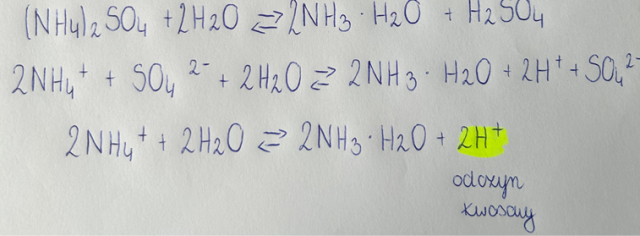 (NH4)2SO4 + 2H2O ⇌ 2NH3 · H2O + H2SO4
2NH4⁺ + SO4²⁻ + 2H2O ⇌ 2NH3 · H2O + 2H⁺ + SO4²⁻
2NH4⁺ + 2H2O ⇌ 2NH3 · H2O + 2H⁺
odczyn
kwasowy